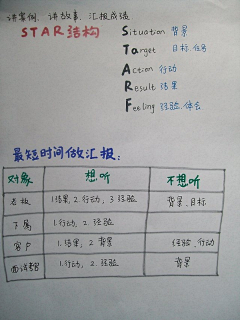 讲案例、讲故事、汇报成绩
STAR结构
Situation 背景
Target 目标.任务
Action 行动
Result 结果
Feeling 经验.体会
最短时间做汇报:
对象 想听 不想听
老板 1.结果, 2.行动, 3.经验 背景.目标
下属 1.行动, 2.经验
客户 1.结果, 2.背景 经验.行动
面试官 1.行动, 2.经验 背景